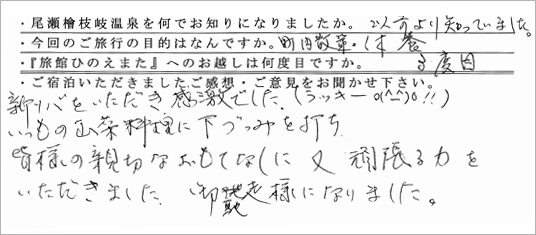 ・尾瀬檜枝岐温泉を何でお知りになりましたか。以前より知っていました。
・今回のご旅行の目的はなんですか。町内散策・休養
・『旅館ひのえまた』へのお越しは何度目ですか。3度目
・ご宿泊いただきましたご感想・ご意見をお聞かせ下さい。
新そばをいただき感激でした。(ラッキーo(^-^)o!!)
いつもの山菜料理に下づつみを打ち
皆様の親切なおもてなしに又頑張る力を
いただきました。御馳走様になりました。